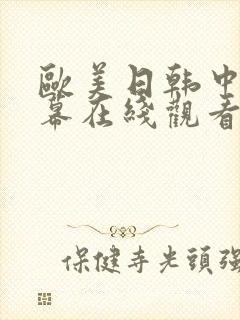 歐美日韩中
幕在綫觀看
保健寺光頭强